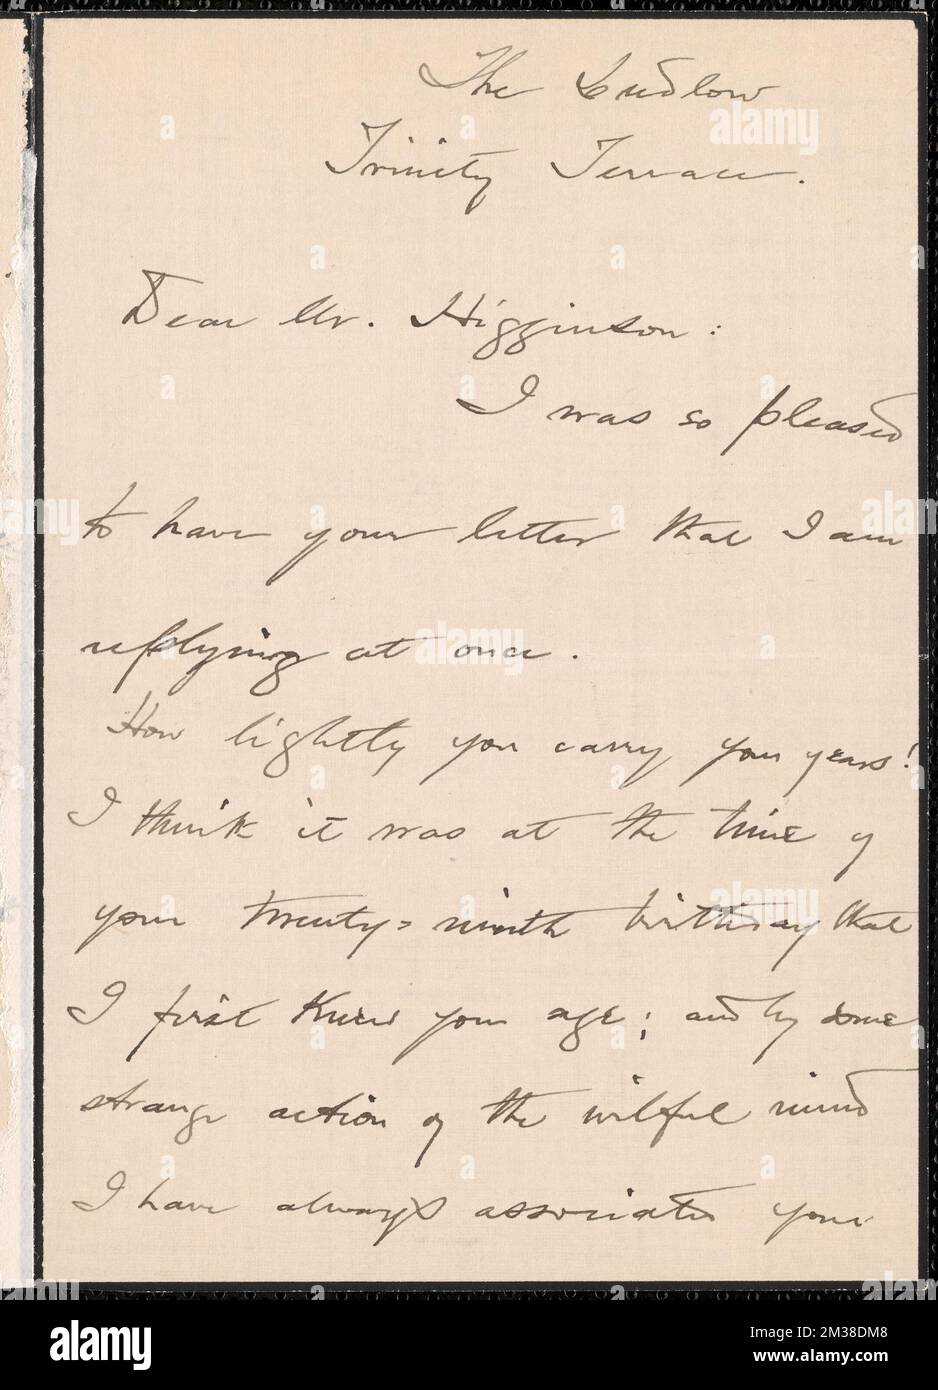 The Ludlow
Trinity Terrace.
Dear Mr. Higginson:
I was so pleased
to have your letter that I am
replying at once.
How lightly you carry your years!
I think it was at the time of
your twenty-ninth birthday that
I first knew your age; and by some
strange action of the wilful mind
I have always associated your
alamy
Image ID: 2M38DM8
www.alamy.com